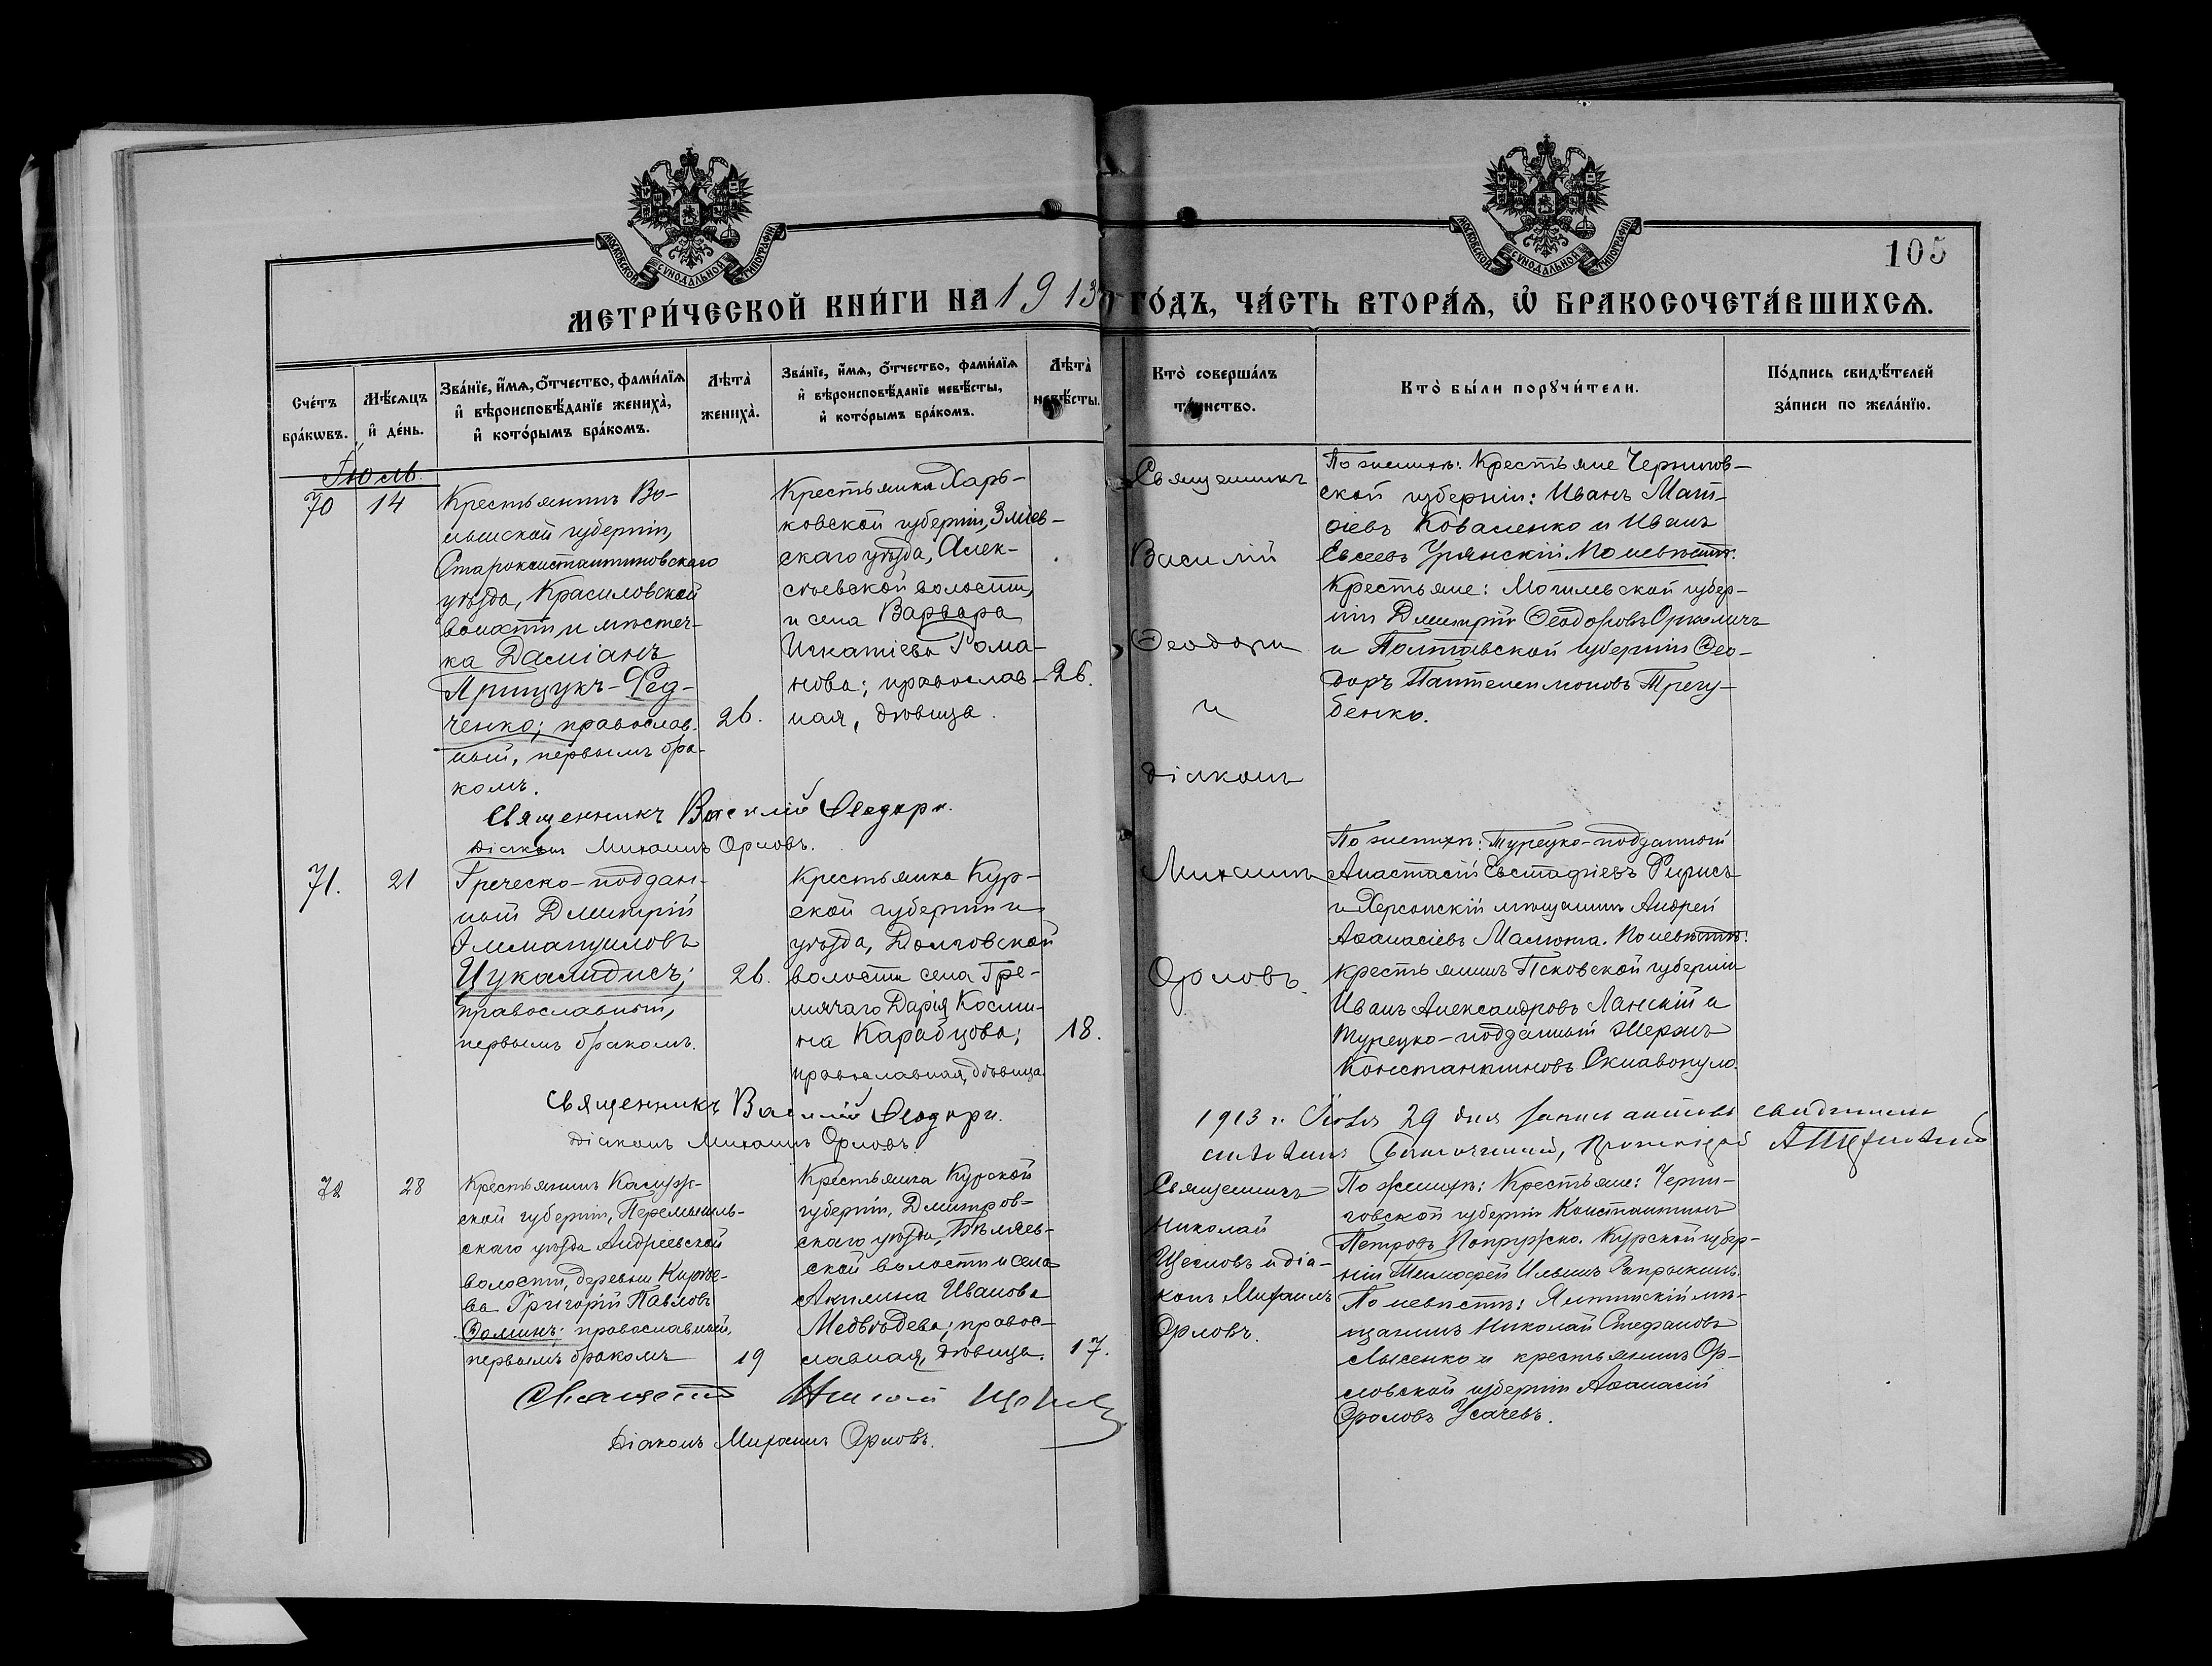 МОСКОВСКОЙ СѴНОДАЛЬНОЙ ТИПОГРАФІИ
МОСКОВСКОЙ СѴНОДАЛЬНОЙ ТИПОГРАФІИ
105
МЕТРИ́ЧЕСКОЙ КНИ́ГИ НА 1913 ГО́ДЪ, ЧА́СТЬ ВТОРА́Ѧ, Ѡ҆ БРАКОСОЧЕТА́ВШИХСѦ.
Сче́тъ
бра́кѡвъ.
Мѣ́сѧцъ
и҆ де́нь.
Зва́нїе, и҆́мѧ, о҆́тчество, фами́лїѧ
и҆ вѣроисповѣ́данїе жениха̀,
и҆ кото́рымъ бра́комъ.
Лѣта̀
жениха̀.
Зва́нїе, и҆́мѧ, о҆́тчество, фами́лїѧ
и҆ вѣроисповѣ́данїе невѣ́сты,
и҆ кото́рымъ бра́комъ.
Лѣта̀
невѣ́сты.
Кто̀ соверша́лъ
та́инство.
Кто̀ бы́ли порꙋчи́тели.
По́дпись свидѣ́телей
за́писи по жела́нїю.
Іюль.
70
14
Крестьянинъ Во-
лынской губерніи,
Староконстантиновскаго
уѣзда, Красиловской
волости и мѣстеч-
ка Даміанъ
Прищукъ-Фед-
ченко; православ-
ный, первымъ бра-
комъ.
26.
Крестьянка Харь-
ковской губерніи, Зміев-
скаго уѣзда, Алек-
сѣевской волости,
и села Варвара
Игнатіева Рома-
нова; православ-
ная, дѣвица.
26.
Священникъ
Василій
Ѳеодори
и
діаконъ
Михаилъ
Орловъ.
По женихѣ: Крестьяне Чернигов-
ской губерніи: Иванъ Мат-
ѳіевъ Коваленко и Иванъ
Евсеевъ Урянскій. По невѣстѣ:
Крестьяне: Могилевской губер-
ніи Дмитрій Ѳеодоровъ
и Полтавской губерніи Ѳео-
доръ Пантелеимоновъ Трегу-
бенко.
Священникъ Василій Ѳеодори.
Діаконъ Михаилъ Орловъ.
71.
21
Греческо-поддан-
ный Дмитрій
Эммануиловъ
Цукалидисъ;
православный,
первымъ бракомъ.
26.
Крестьянка Кур-
ской губерніи и
уѣзда, Долговской
волости села Гре-
мячаго Дарія Косми-
на Карабцова;
православная, дѣвица.
18.
По женихѣ: Турецко-подданный
Анастасій Евстафіевъ
и Херсонскій мѣщанинъ Андрей
Аѳанасіевъ Малюта. По невѣстѣ:
крестьянинъ Псковской губерніи
Иванъ Александровъ Ланскій и
турецко-подданный
Константиновъ Склавопуло.
Священникъ Василій Ѳеодори.
Діаконъ Михаилъ Орловъ.
1913 г. 29 дня записи актовъ
Благочинный, Протоіерей
72
28
Крестьянинъ Калуж-
ской губерніи, Перемышль-
скаго уѣзда Андреевской
волости, деревни
Григорій Павловъ
Ѳоминъ; православный,
первымъ бракомъ
19
Крестьянка Курской
губерніи, Дмитров-
скаго уѣзда,
ской волости и села
Акилина Иванова
Медвѣдева; правос-
лавная, дѣвица.
17.
Священникъ
Николай
Щегловъ и діа-
конъ Михаилъ
Орловъ.
По женихѣ: Крестьяне: Черни-
говской губерніи Константинъ
Петровъ Попружко. Курской губер-
ніи Тимоѳей Ильинъ Запрыкинъ.
По невѣстѣ: Ялтинскій мѣ-
щанинъ Николай Стефановъ
Лысенко и крестьянинъ Ор-
ловской губерніи Аѳанасій
Фроловъ Усачевъ.
Священникъ Николай Щегловъ
Діаконъ Михаилъ Орловъ.